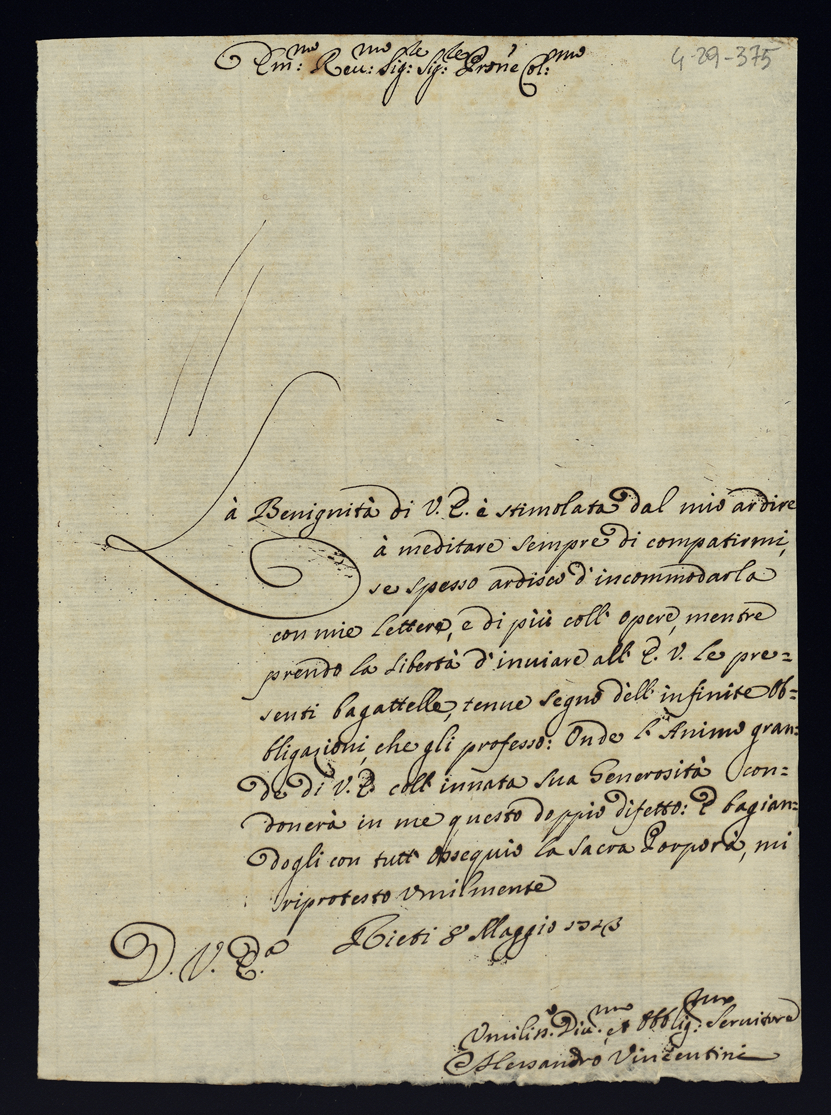 Em:mo Reu:mo Sig:re Sig:re Prōne Col:mo
4-29-375
Là Benignità di V. E. è stimolata dal mio ardire
à meditare sempre di compatirmi,
se spesso ardisco d'incommodarla
con mie lettere, e di più coll' opere, mentre
prendo la libertà d'inuiare all' E. V. le pre=
senti bagattelle, tenue segno dell' infinite Ob=
bligazioni, che gli professo: Onde l'Animo gran=
de di V. E. coll' innata sua Generosità con=
donerà in me questo doppio difetto: E bagian=
dogli con tutt' Ossequio la Sacra Porpora, mi
riprotesto vmilmente
Rieti 8 Maggio 1743
D. V. E.a
Vmiliss:o Diu:mo et Obblig:mo Seruitore
Alessandro Vincentini